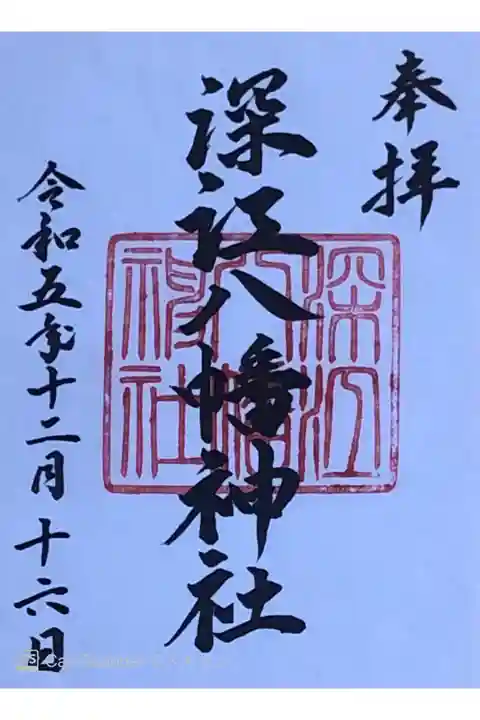 奉拝
深江八幡神社
深江
八幡
神社
令和五年十二月十六日